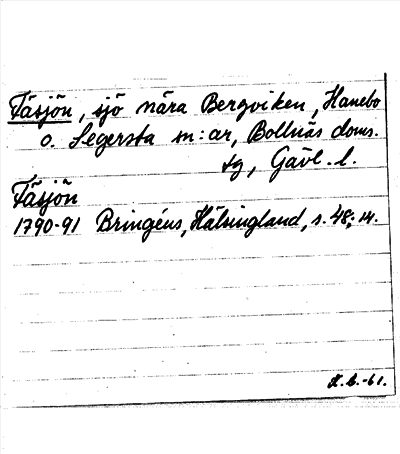 Fäsjön, sjö nära Bergviken, Hanebo
o. Segersta sn:ar, Bollnäs doms.
sg, Gävl. l.
Fäsjön
1790-91 Bringéus, Hälsingland, s. 48; 14.
K.G.-61.